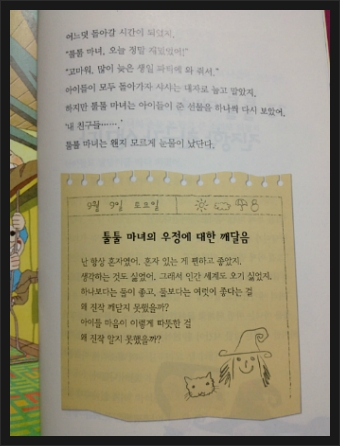 어느덧 돌아갈 시간이 되었지.
"툴툴 마녀, 오늘 정말 재밌었어!"
"고마워, 많이 늦은 생일 파티에 와 줘서."
아이들이 모두 돌아가자 샤샤는 대자로 눕고 말았지.
하지만 툴툴 마녀는 아이들이 준 선물을 하나씩 다시 보았어.
'내 친구들…… .'
툴툴 마녀는 왠지 모르게 눈물이 났단다.
9월 9일 토요일
툴툴 마녀의 우정에 대한 깨달음
난 항상 혼자였어. 혼자 있는 게 편하고 좋았지.
생각하는 것도 싫었어. 그래서 인간 세계도 오기 싫었지.
하나보다는 둘이 좋고, 둘보다는 여럿이 좋다는 걸
왜 진작 깨닫지 못했을까?
아이들 마음이 이렇게 따뜻한 걸
왜 진작 알지 못했을까?